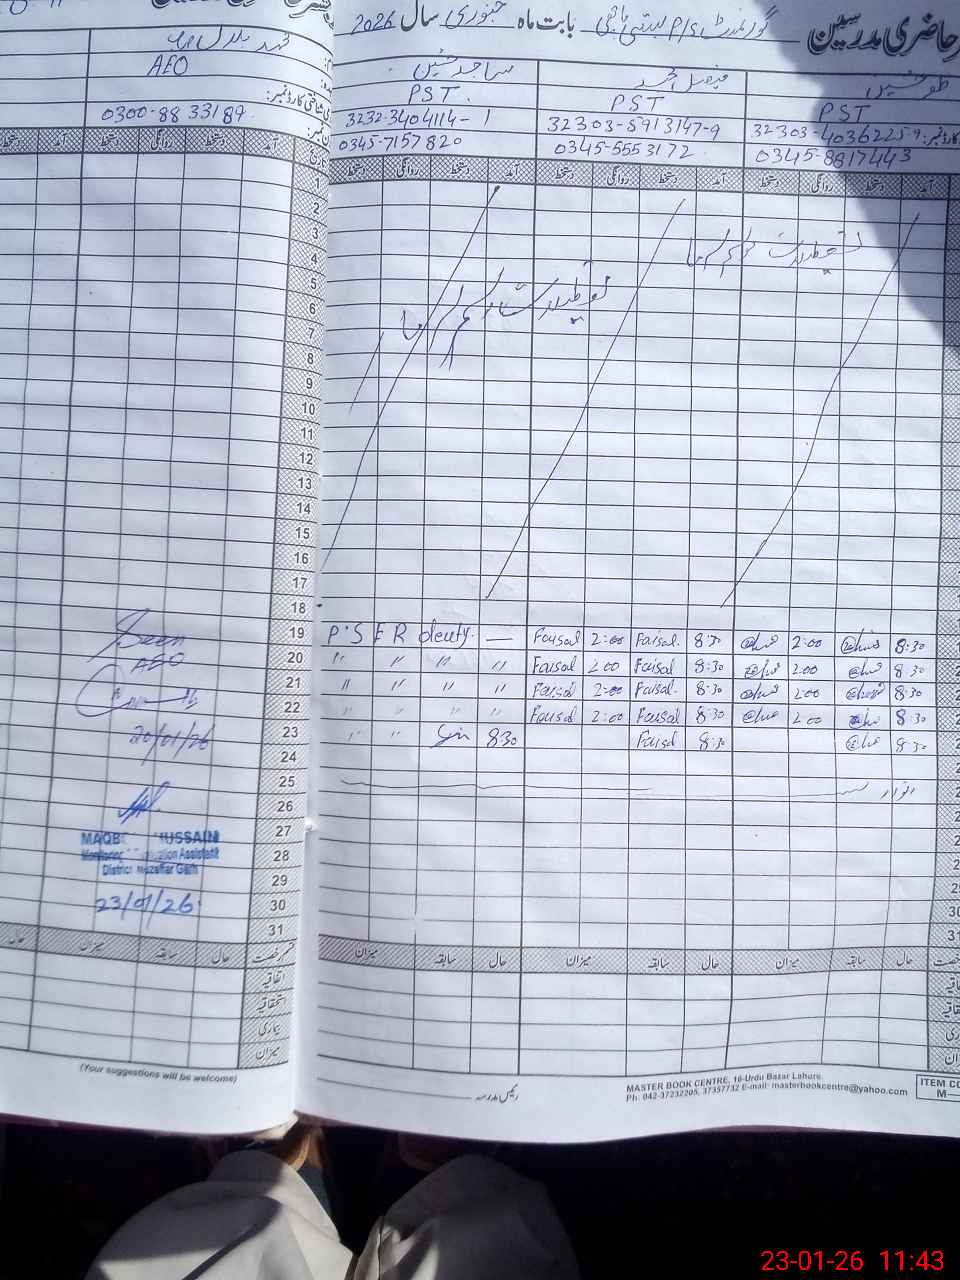 حاضری مدرسین
گورنمنٹ P/S بستی
بابت ماہ جنوری سال 2026
ظفر حسین
فیصل احمد
ساجد حسین
PST
PST
PST
32303-4036225-9
32303-5913147-9
3232-3404114-1
0345-8817443
0345-5553172
0345-7157820
آمد دستخط روانگی دستخط آمد دستخط روانگی دستخط آمد دستخط روانگی دستخط
تعطیلات موسم سرما
تعطیلات موسم سرما
P.S E R deuty. — Faisal 2:00 Faisal. 8:30 2:00 8:30
" " " " Faisal 2:00 Faisal 8:30 2:00 8:30
" " " " Faisal 2:00 Faisal. 8:30 2:00 8:30
" " " " Faisal 2:00 Faisal 8:30 2:00 8:30
" " 8:30 Faisal 8:30 8:30
اتوار
حال سابقہ میزان حال سابقہ میزان حال سابقہ میزان
رئیس مدرسہ
MASTER BOOK CENTRE, 16-Urdu Bazar Lahore.
Ph. 042-37232205, 37357732 E-mail: masterbookcentre@yahoo.com
ITEM CO
M—
محمد بلال
AEO
0300-88 33189
آمد دستخط روانگی دستخط
1
2
3
4
5
6
7
8
9
10
11
12
13
14
15
16
17
18
19
20
21
22
23
24
25
26
27
28
29
30
31
Seen
AEO
20/01/26
HUSSAIN
Assistant
District Muzaffar Garh
23/01/26
نمبر رخصت حال سابقہ میزان حال
اتفاقیہ
استحقاقیہ
بیماری
میزان
(Your suggestions will be welcome)
23-01-26 11:43